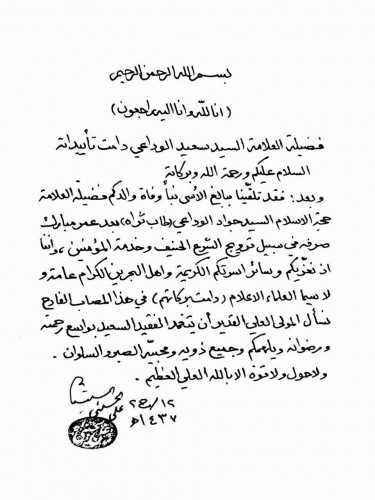 بسم الله الرحمن الرحيم
(انا لله وانا اليه راجعون)
فضيلة العلامة السيد سعيد الوداعي دامت تأييداته
السلام عليكم ورحمة الله وبركاته
وبعد: فقد تلقينا ببالغ الأسى نبأ وفاة والدكم فضيلة العلامة
حجة الاسلام السيد جواد الوداعي (طاب ثراه) بعد عمر مبارك
صرفه في سبيل ترويج الشرع الحنيف وخدمة المؤمنين، واننا
اذ نعزيكم وسائر اسرتكم الكريمة واهل البحرين الكرام عامة و
لا سيما العلماء الاعلام (دامت بركاتهم) في هذا المصاب الفادح
نسأل المولى العلي القدير أن يتغمد الفقيد السعيد بواسع رحمته
ورضوانه ويلهمكم وجميع ذويه ومحبيه الصبر والسلوان.
ولاحول ولاقوة الا بالله العلي العظيم.
علي الحسيني السيستاني
١٤٣٧هـ